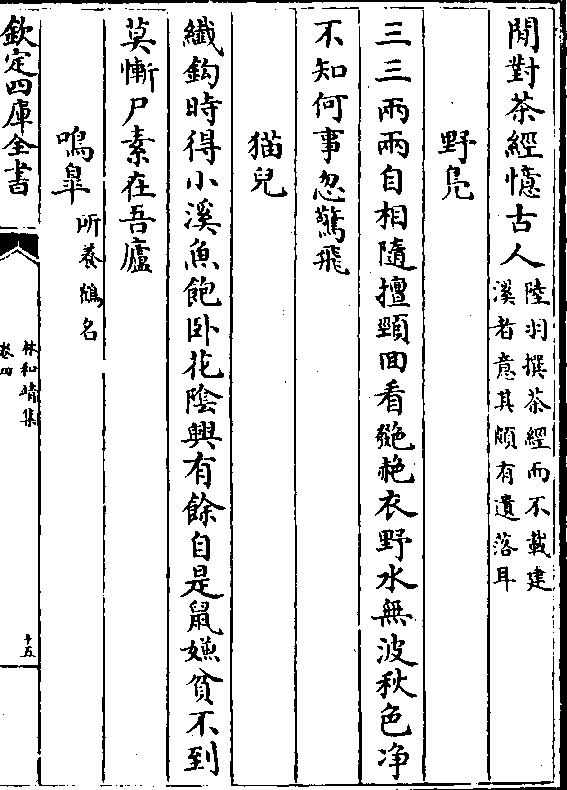 閒對茶經憶古人
陸羽撰茶經而不載建
溪者意其頗有遺落耳
野鳬
三三兩兩自相隨擅頸囬看衣野水無波秋色净
不知何事忽驚飛
猫兒
纎鈎時得小溪魚飽卧花陰興有餘自是鼠嫌貧不到
莫慚尸素在吾廬
鳴臯 所養鶴名
欽定四庫全書
林和靖集
卷四
十五